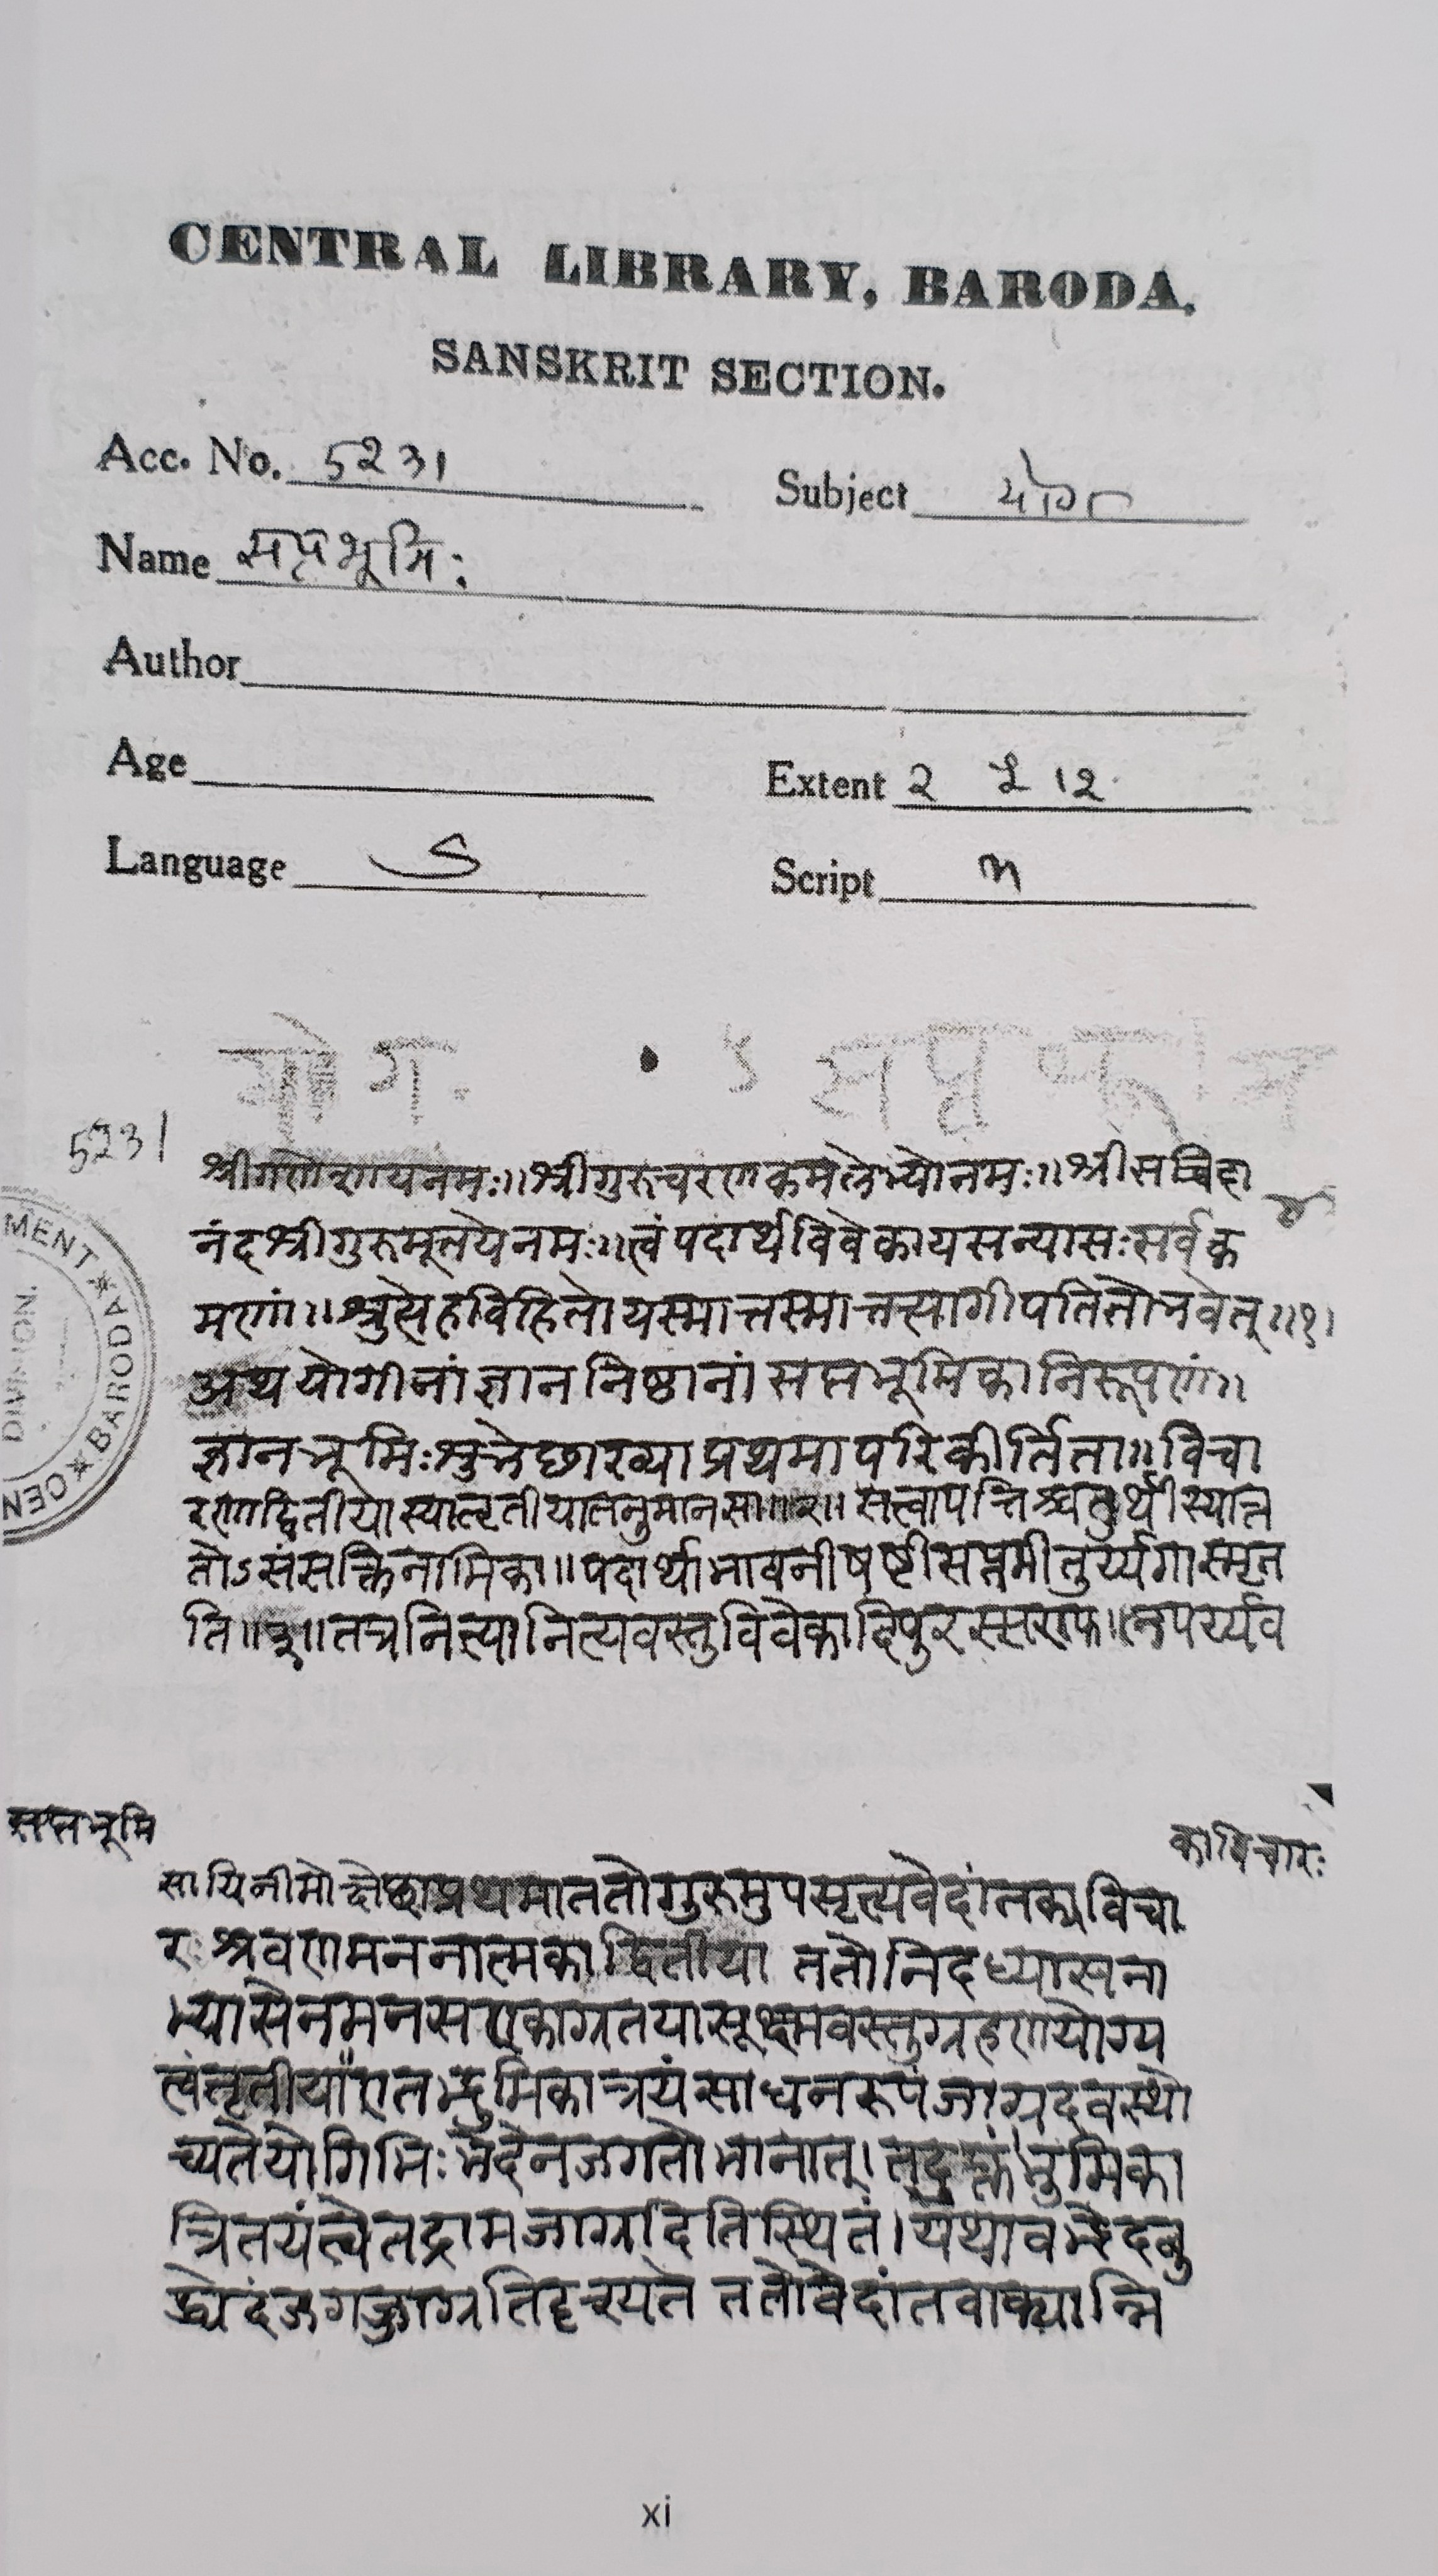 CENTRAL LIBRARY, BARODA,
SANSKRIT SECTION.
Acc. No. 5231 Subject योग
Name सप्तभूमिः
Author
Age Extent 2 12
Language S Script
योग. सप्त
5231
श्रीगणेशायनमः॥श्रीगुरुचरणकमलेभ्योनमः॥श्रीसच्चिदा
नंदश्रीगुरुमूर्तयेनमः॥त्वंपदार्थविवेकायसन्यासःसर्वक
र्मणां॥श्रुत्येहविहितोयस्मात्तस्मात्तत्यागीपतितोभवेत्॥१।
अथयोगीनांज्ञाननिष्ठानांसप्तभूमिकानिरूपणं॥
ज्ञानभूमिःशुभेछाख्याप्रथमापरिकीर्तिता॥विचा
रणाद्वितीयास्यात्तृतीयातनुमानसा॥२॥सत्त्वापत्तिश्चतुर्थीस्यात्त
तोऽसंसक्तिनामिका॥पदार्थाभावनीषष्टीसप्तमीतुर्य्यगास्मृत
ति॥३॥तत्रनित्यानित्यवस्तुविवेकादिपुरस्सराफ॥लपर्य्यव
MENT * BARODA * CEN
DIVISION.
सप्तभूमि
काविचारः
सायिनीमोक्षेछाप्रथमाततोगुरुमुपसृत्यवेदांतकाविचा
रःश्रवणमननात्मकाद्वितीया ततोनिदध्यासना
भ्यासेनमनसएकाग्रतयासूक्ष्मवस्तुग्रहणयोग्य
त्वंतृतीया॥एतद्भुमिकात्रयंसाधनरूपंजाग्रदवस्थो
च्यतेयोगिभिःभेदेनजगतोभानात्।तदुक्तं।भुमिका
त्रितयंत्वेतद्रामजाग्रदितिस्थितं।यथावभेदबु
द्ध्येदंजगज्जाग्रतिदृश्यते ततोवेदांतवाक्यान्नि
xi